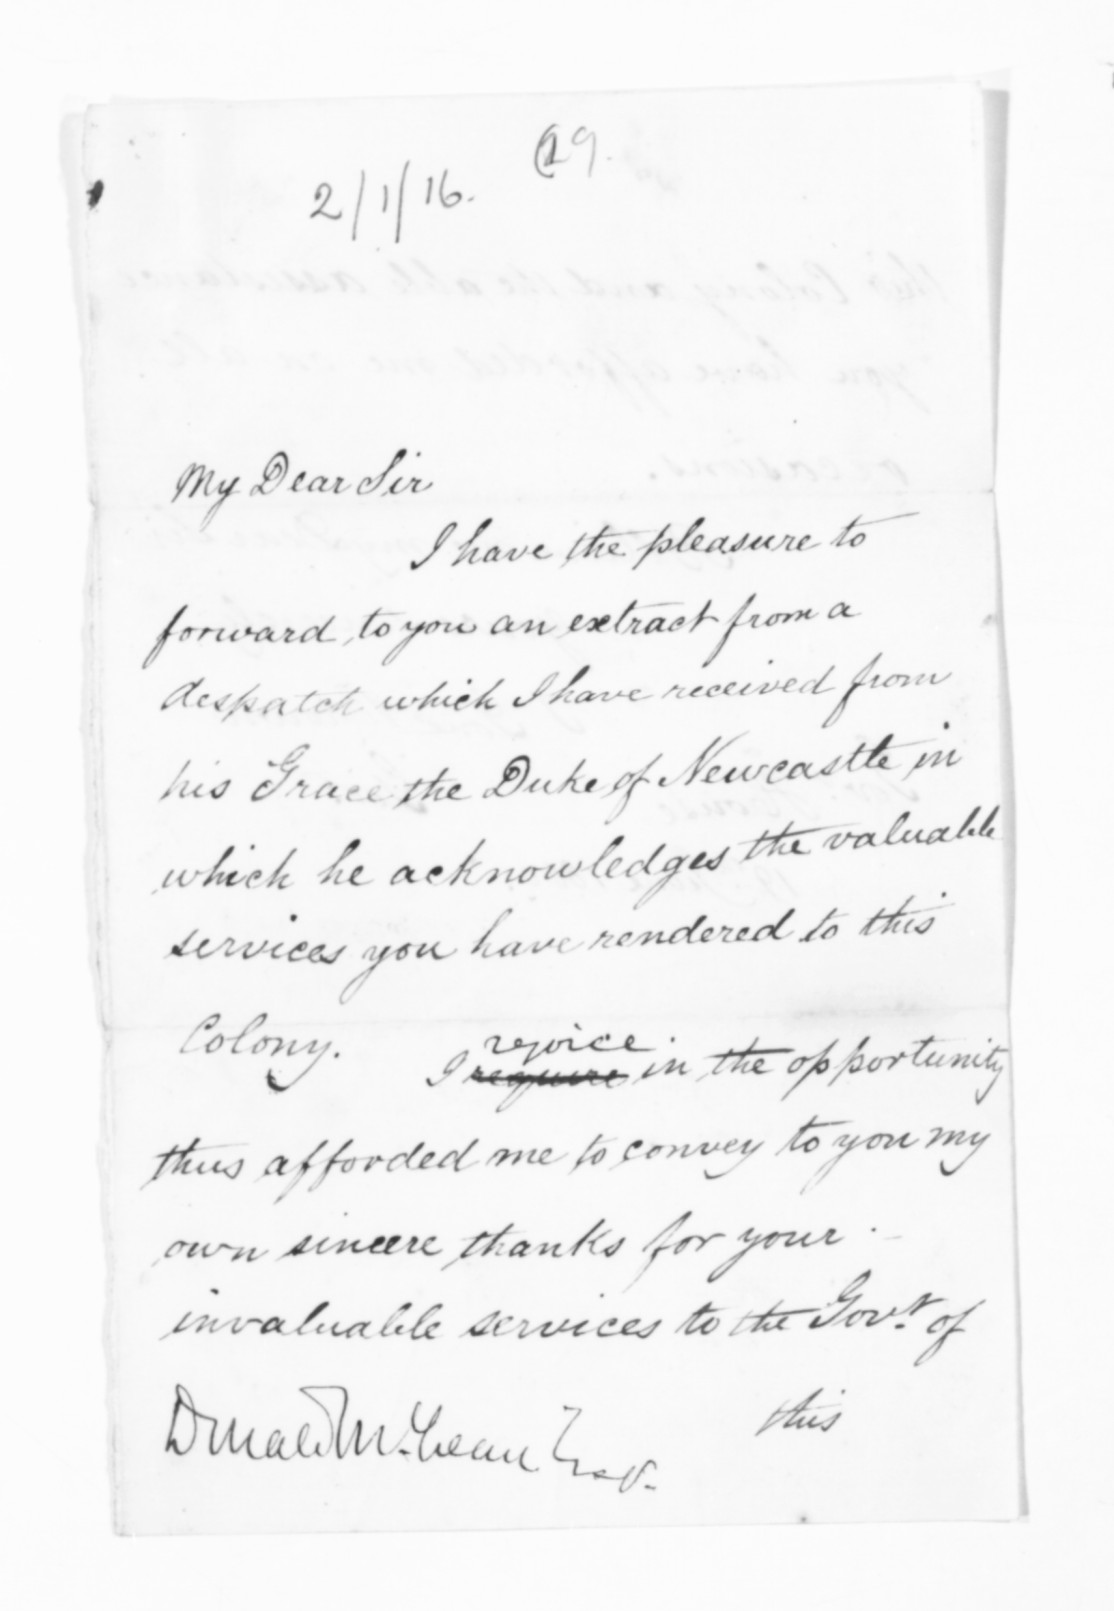 29.
2/1/16.
My Dear Sir
I have the pleasure to
forward to you an extract from a
despatch which I have received from
his Grace the Duke of Newcastle in
which he acknowledges the valuable
services you have rendered to this
Colony.
rejoice
I require in the opportunity
thus afforded me to convey to you my
own sincere thanks for your
invaluable services to the Govt. of
this
Donald McLean Esqr.